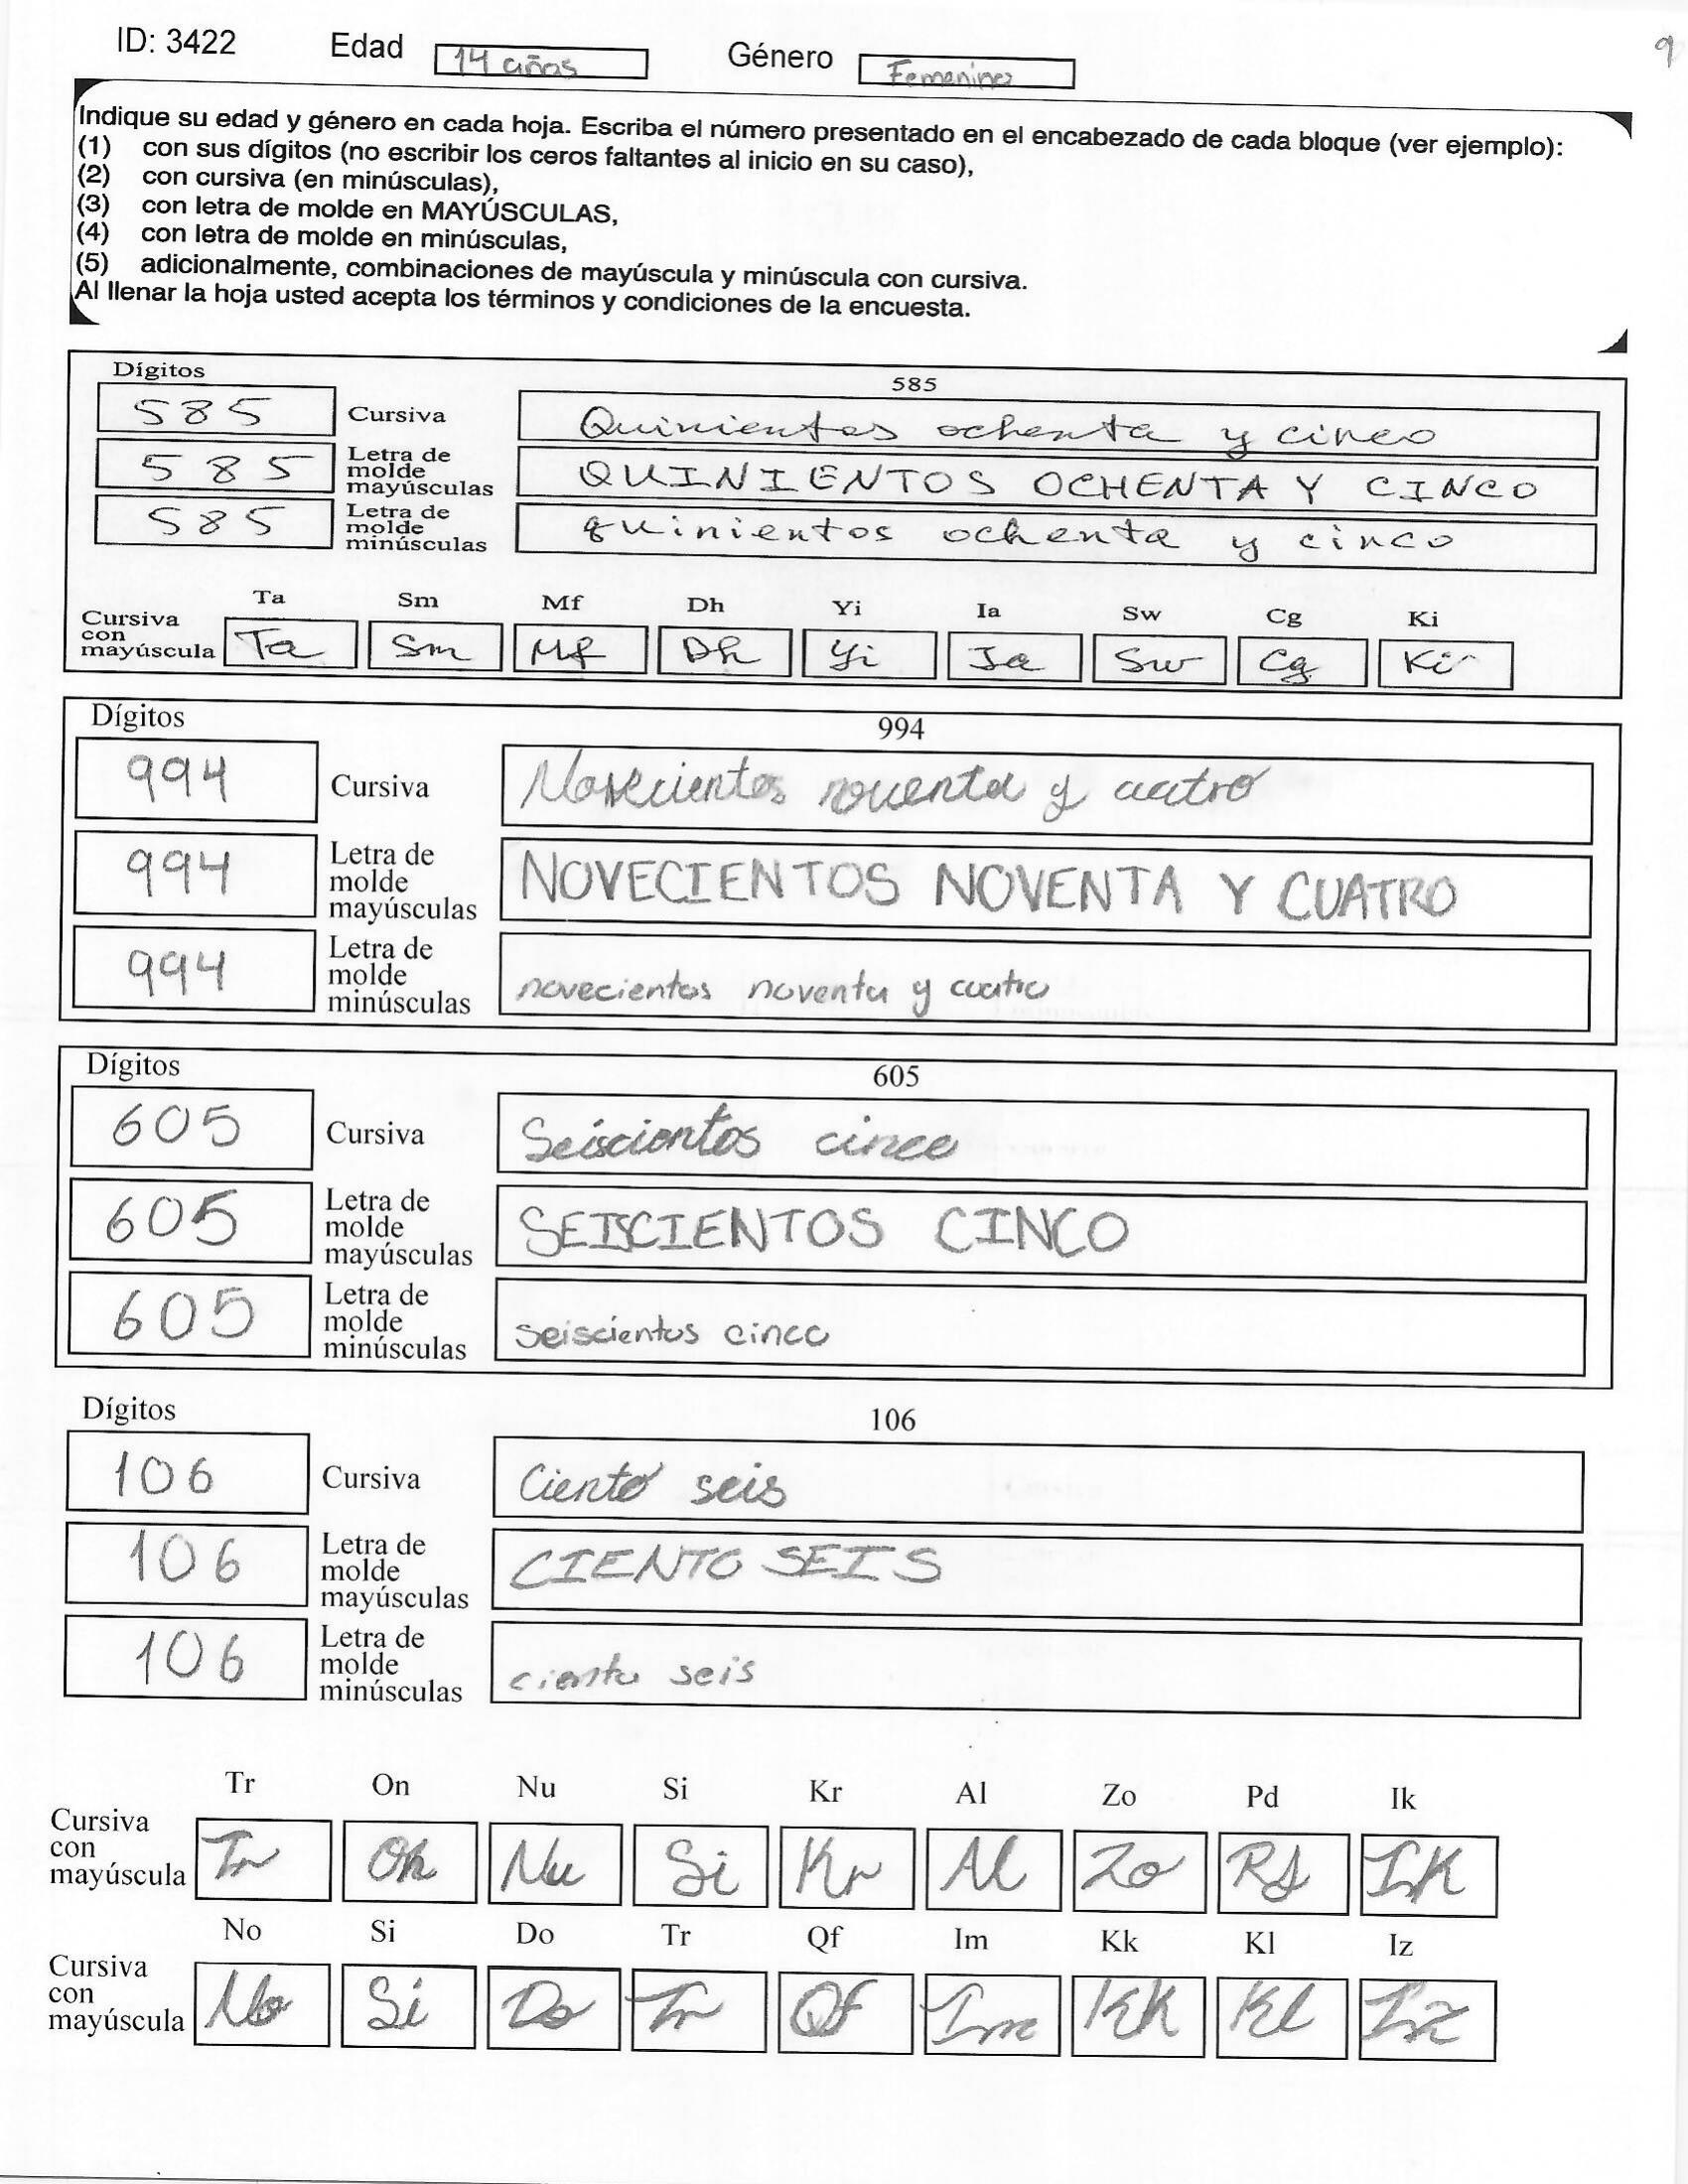 ID: 3422 Edad 14 años Género Femenino 9
Indique su edad y género en cada hoja. Escriba el número presentado en el encabezado de cada bloque (ver ejemplo):
(1) con sus dígitos (no escribir los ceros faltantes al inicio en su caso),
(2) con cursiva (en minúsculas),
(3) con letra de molde en MAYÚSCULAS,
(4) con letra de molde en minúsculas,
(5) adicionalmente, combinaciones de mayúscula y minúscula con cursiva.
Al llenar la hoja usted acepta los términos y condiciones de la encuesta.
Dígitos 585
585 Cursiva Quinientos ochenta y cinco
585 Letra de molde mayúsculas QUINIENTOS OCHENTA Y CINCO
585 Letra de molde minúsculas quinientos ochenta y cinco
Ta Sm Mf Dh Yi Ia Sw Cg Ki
Cursiva con mayúscula Ta Sm Mf Dh Yi Ia Sw Cg Ki
Dígitos 994
994 Cursiva noventa y cuatro
994 Letra de molde mayúsculas NOVECIENTOS NOVENTA Y CUATRO
994 Letra de molde minúsculas novecientos noventa y cuatro
Dígitos 605
605 Cursiva Seiscientos cinco
605 Letra de molde mayúsculas SEISCIENTOS CINCO
605 Letra de molde minúsculas seiscientos cinco
Dígitos 106
106 Cursiva Ciento seis
106 Letra de molde mayúsculas CIENTO SEIS
106 Letra de molde minúsculas ciento seis
Tr On Nu Si Kr Al Zo Pd Ik
Cursiva con mayúscula Tr On Nu Si Kr Al Zo Ik
No Si Do Tr Qf Im Kk Kl Iz
Cursiva con mayúscula No Si Do Tr Qf Im Kk Kl Iz